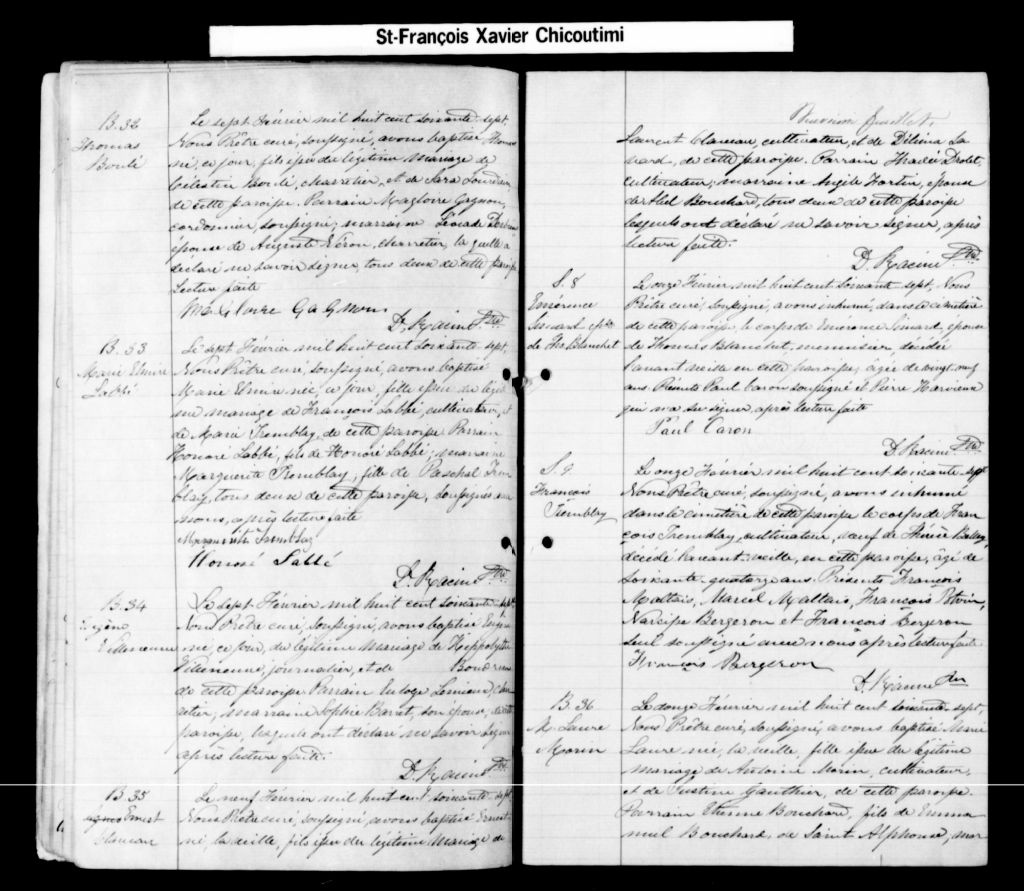 St-François Xavier Chicoutimi
B. 32
Thomas
Boulé
Le sept Février mil huit cent soixante sept,
Nous Prêtre curé, soussigné, avons baptisé Thomas
né, ce jour, fils issu du légitime mariage de
Célestin Boulé, charretier, et de Sara
de cette paroisse. Parrain Magloire Gagnon,
cordonnier soussigné; marraine
épouse de Auguste Néron, charretier, la quelle a
déclaré ne savoir signer, tous deux de cette paroisse
Lecture faite
Magloire Gagnon
D. Racine Ptre
B. 33
Marie Elmire
Labbé
Le sept Février mil huit cent soixante sept,
Nous Prêtre curé, soussigné, avons baptisé
Marie Elmire née, ce jour, fille issue du légiti
me mariage de François Labbé, cultivateur, et
de Marie Tremblay, de cette paroisse Parrain
Honoré Labbé, fils de Honoré Labbé; marraine
Marguerite Tremblay, fille de Paschal Trem
blay, tous deux de cette paroisse, soussignés avec
nous, après lecture faite
Marguerite Tremblay
Honoré Labbé
D. Racine Ptre
B. 34
Eugène
Villeneuve
Le sept Février mil huit cent soixante sept
Nous Prêtre curé, soussigné, avons baptisé Eugène
né, ce jour, du légitime mariage de Hippolyte
Villeneuve, journalier, et de Boudreau
de cette paroisse Parrain Euloge Lemieux, char
retier, marraine Sophie Barret, son épouse, de cette
paroisse, lesquels ont déclaré ne savoir signer
après lecture faite.
D. Racine Ptre
B. 35
Ernest
Claveau
Le neuf Février mil huit cent soixante sept
Nous Prêtre curé, soussigné, avons baptisé Ernest
né, la veille, fils issu du légitime mariage de
feuillet.
Laurent Claveau, cultivateur, et de Délima Sa
vard, de cette paroisse. Parrain Drolet,
cultivateur; marraine Angèle Fortin, épouse
de Abel Bouchard, tous deux de cette paroisse
lesquels ont déclaré ne savoir signer, après
lecture faite.
D. Racine Ptre
S. 8
Emérence
Simard épse
de Ths Blanchet
Le onze Février mil huit cent soixante sept, Nous
Prêtre curé, soussigné, avons inhumé, dans le cimetière
de cette paroisse, le corps de Emérence Simard, épouse
de Thomas Blanchet, menuisier, décédée
l'avant veille en cette paroisse, âgée de vingt neuf
ans. Présents Paul Caron soussigné et Pierre
qui n'a su signer, après lecture faite
Paul Caron
D. Racine Ptre
S. 9
François
Tremblay
Le onze Février mil huit cent soixante sept
Nous Prêtre curé, soussigné, avons inhumé
dans le cimetière de cette paroisse le corps de Fran
çois Tremblay, cultivateur, veuf de Thérèse
décédé l'avant-veille, en cette paroisse, âgé de
soixante-quatorze ans. Présents François
Maltais, Marcel Maltais, François Potvin,
Narcisse Bergeron et François Bergeron
seul soussigné avec nous après lecture faite.
François Bergeron
D. Racine Ptre
B. 36
M. Laure
Morin
Le douze Février mil huit cent soixante sept,
Nous Prêtre curé, soussigné, avons baptisé Marie
Laure née, la veille, fille issue du légitime
mariage de Antoine Morin, cultivateur,
et de Justine Gauthier, de cette paroisse.
Parrain Etienne Bouchard, fils de Emma
nuel Bouchard, de Saint Alphonse, mar